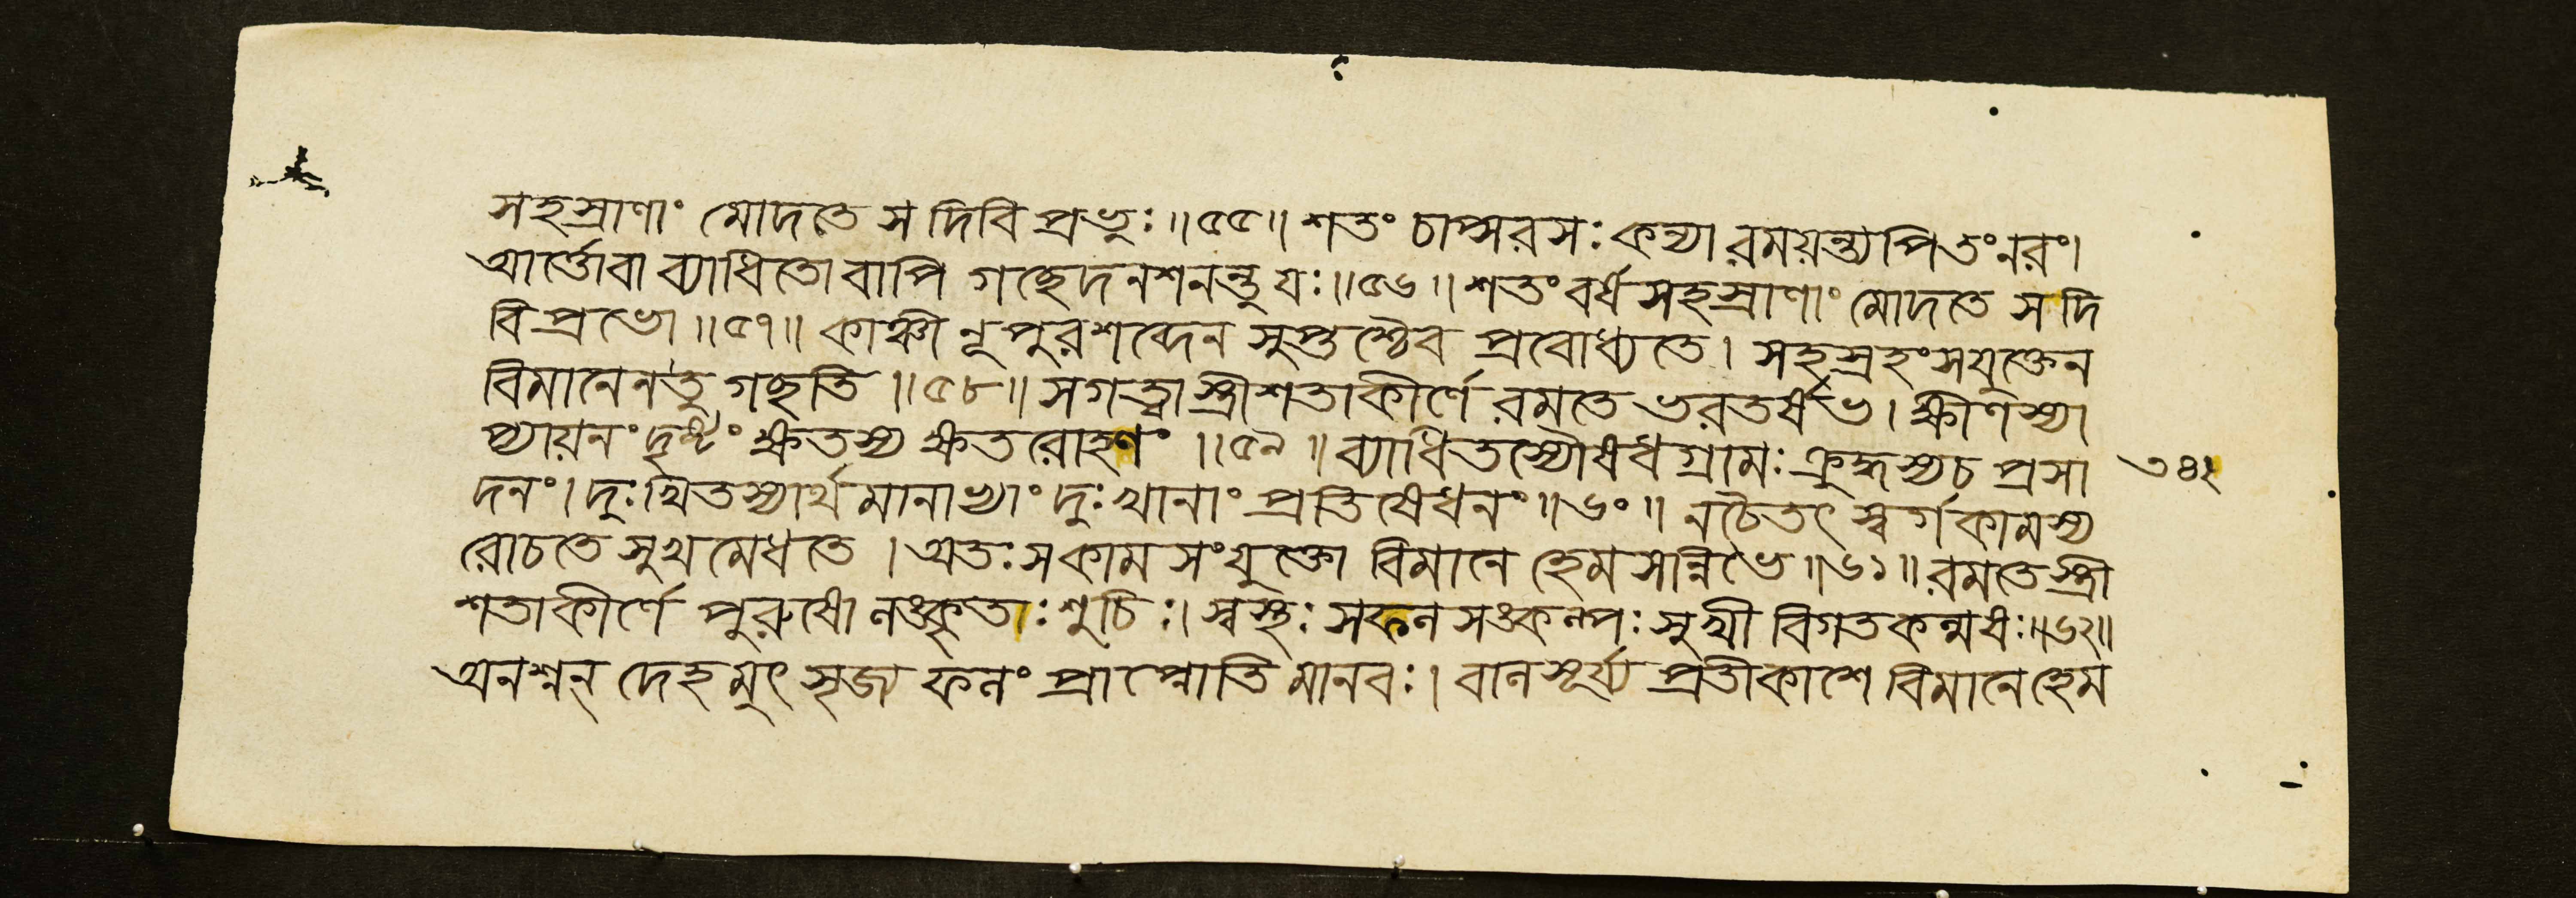 সহস্রাণাং মোদতে স দিবি প্রভুঃ॥৫৫॥ শতং চাপ্সরসঃ কন্যা রময়ন্ত্যপি তং নরং।
আর্ত্তোবা ব্যাধিতো বাপি গচ্ছেদনশনন্তু যঃ॥৫৬॥ শতং বর্ষ সহস্রাণাং মোদতে স দি
বি প্রভো॥৫৭॥ কাঞ্চী নূপুরশব্দেন সুপ্তশ্চৈব প্রবোধ্যতে। সহস্রহংসযুক্তেন
বিমানেনতু গচ্ছতি॥৫৮॥ সগত্বা স্ত্রীশতাকীর্ণে রমতে ভরতর্ষভ। ক্ষীণস্যা
প্যায়নং দৃষ্টং ক্ষতস্য ক্ষতরোহণং॥৫৯॥ ব্যাধিতস্যৌষধগ্রামঃ ক্রুদ্ধস্যচ প্রসা
৩৪২
দনং। দুঃখিতস্যার্থমানাখ্যাং দুঃখানাং প্রতিষেধনং॥৬০॥ নচৈতৎ স্বর্গকামস্য
রোচতে সুখমেধতে। অতঃ সকাম সংযুক্তো বিমানে হেমসন্নিভে॥৬১॥ রমতে স্ত্রী
শতাকীর্ণে পুরুষো লঙ্কৃতাঃ শুচিঃ। স্বস্থঃ সফল সঙ্কল্পঃ সুখী বিগতকল্মষঃ॥৬২॥
অনশ্নন্ দেহমুৎসৃজ্য ফলং প্রাপ্নোতি মানবঃ। বালসূর্য্য প্রতীকাশে বিমানে হেম